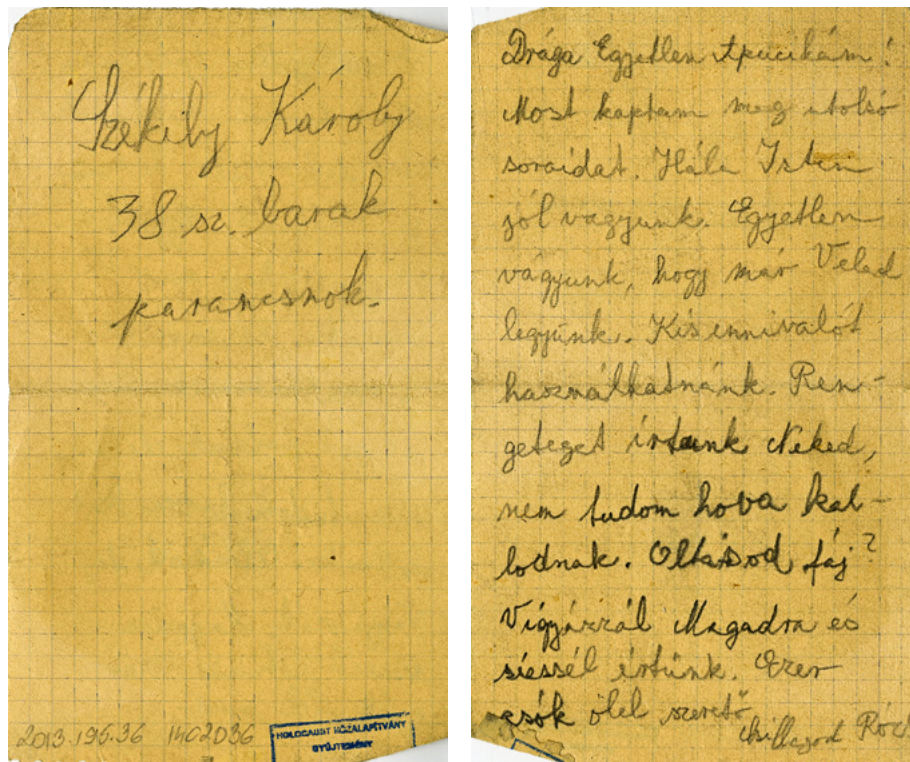 Székely Károly
38 sz. barak
parancsnok.
2013.196.36 1402036
HOLOCAUST KÖZALAPÍTVÁNY
GYŰJTEMÉNY
Drága Egyetlen Apucikám!
Most kaptam meg utolsó
soraidat. Hála Isten
jól vagyunk. Egyetlen
vágyunk, hogy már Veled
legyünk. Kis ennivalót
használhatnánk. Ren-
geteget írtunk Neked,
nem tudom hova kal-
lodnak. Oltásod fáj?
Vigyázzál Magadra és
siessél értünk. Ezer
csók ölel szerető
Csillagod